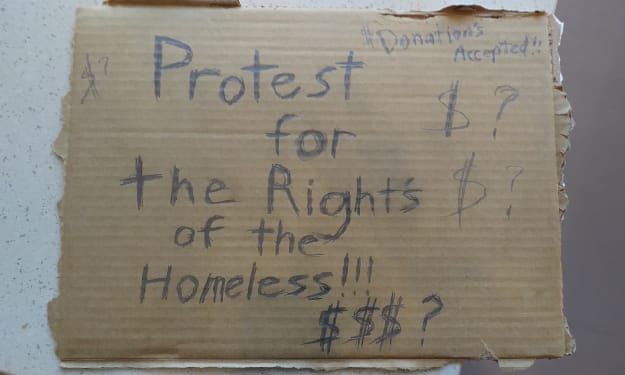 $?
$Donation's
Accepted!!
Protest
$?
for
the Right's
$?
of the
Homeless!!!
$$$?